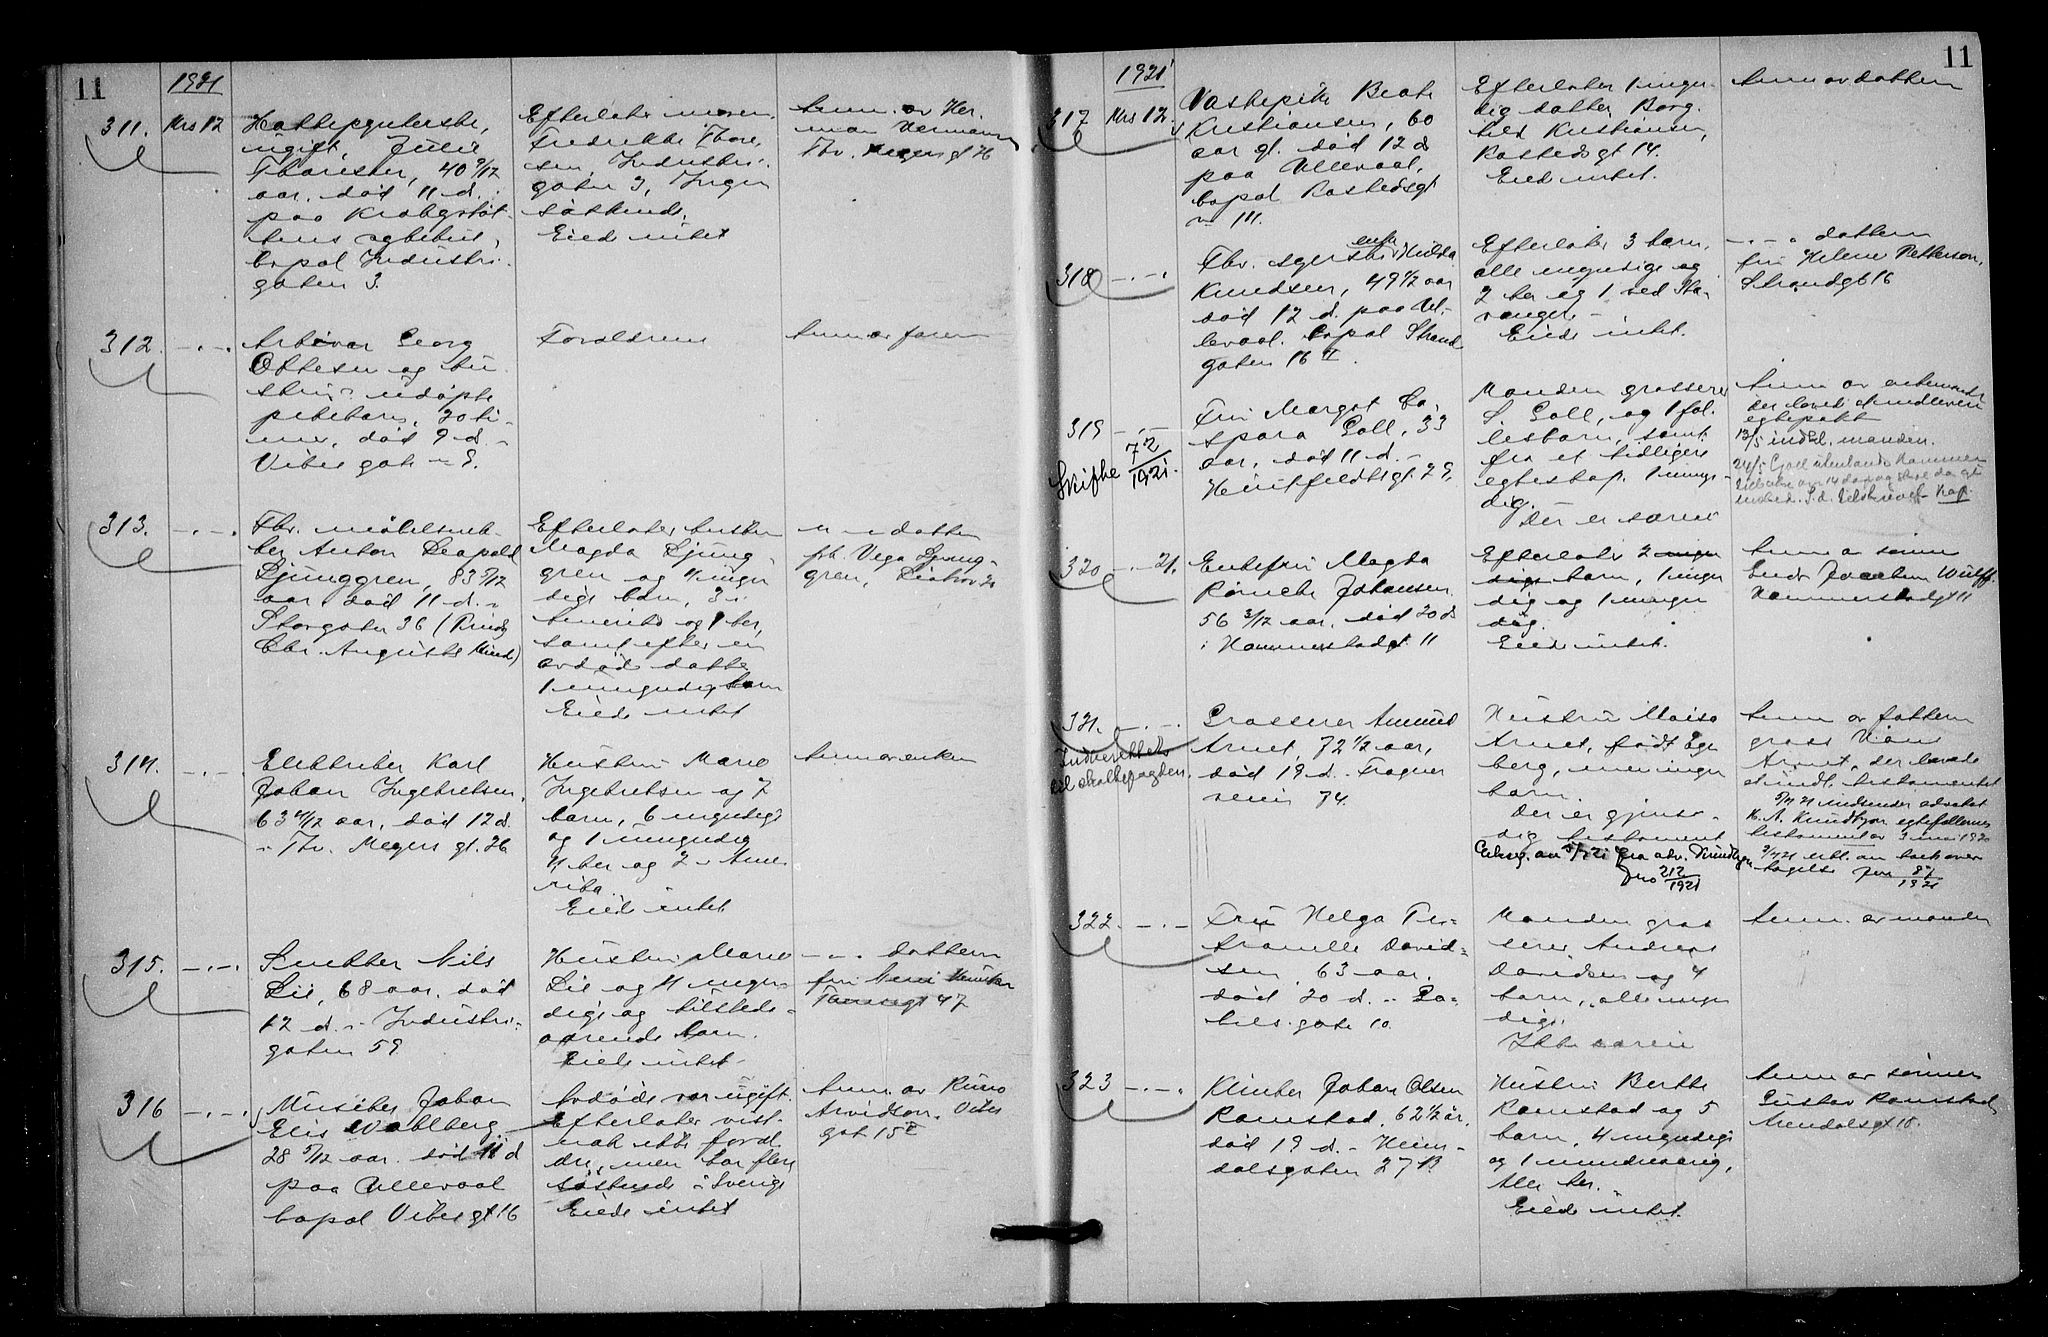 11
1921
311.
Mrs 12
Hattepynterske,
ugift, Julie
Thoresen, 40 9/12
aar, död 11 d.
paa Krohgstöt-
tens sykehus,
bopæl Industri-
gaten 3.
Efterlater moren
Fredrikke Thore-
sen, Industri-
gaten 3, Ingen
söskende.
Eiede intet
Anm. av Her-
man Hermansen
Thv. Meyers gt 26
312.
-"-
Arbeider Georg
Ottesen og hu-
strus udöpte
pikebarn, 20 ti-
mer, död 9 d.
Vibes gate 9.
Forældrene
Anm. av faren
313.
-"-
Fhv. möbelsnek-
ker Anton Leopold
Ljunggren, 83 5/12
aar, död 11 d. i
Storgaten 36 (Prinds
Chr. Augusts Minde)
Efterlater hustru
Magda Ljung-
gren og 4 myn-
dige barn, 3 i
Amerika og 1 her,
samt efter en
avdöd datter
1 umyndig barn
Eiede intet
" " datteren
frk. Vega Ljung-
gren,
314.
-"-
Elektriker Karl
Johan Ingebretsen,
63 4/12 aar, död 12 d.
i Thv. Meyers gt. 26
Hustru Marie
Ingebretsen og 7
barn, 6 myndige
og 1 umyndig
4 her og 2 i Ame-
rika.
Eiede intet
Anm. av enken
315.
-"-
Snekker Nils
Lie, 68 aar, död
12 d. i Industri-
gaten 59.
Hustru Marie
Lie og 4 myn-
dige og tilstede-
værende barn.
Eiede intet
-"- datteren
fru
47
316
-"-
Musiker Johan
Elis Wahlberg
28 5/12 aar. död 11 d
paa Ullevaal
bopæl Vibes gt 16
Avdöde var ugift.
Efterlater vist-
nok ikke foræl-
dre, men har flere
söskende i Sverige
Eiede intet
Anm. av Runo
Arvidson, Vibes
gat. 15 II
11
1921
317
Mrs 12.
Vaskepike Beate
Kristiansen, 60
aar gl. död 12 d
paa Ullevaal,
bopæl Rostedsgt
14 III.
Efterlater 1 myn-
dig datter Borg-
hild Kristiansen,
Rostedsgt 14.
Eiede intet.
Anm av datteren
318
-"-
enke
Fhv. syerske Hulda
Knudsen, 49 1/2 aar
död 12 d. paa Ul-
levaal. bopæl Strand
gaten 16 II.
Efterlater 3 barn,
alle myndige og
2 her og 1 ved Sta-
vanger.
Eiede intet.
-"- datteren
fru Helene Petterson,
Strandgt 16
319
-"-
Skifte 72/1921.
Fru Margot Ca-
spara Goll, 33
aar, död 11 d. i
Huitfeldtsgt 29.
Manden grosserer
S. Goll, og 1 fæl-
lesbarn, samt
fra et tidligere
egteskap 1 umyn-
dig.
Der er særeie
Anm av enkemanden
der lovet at indlevere
egtepakt
13/5 indkl. manden.
320
-"- 21.
Enkefru Magda
Johansen
56 3/12 aar, död 20 d
i Hammerstadgt 11
Efterlater 2 myn-
dige barn, 1 myn
dig og 1 umyn
dig.
Eiede intet.
Anm av sönnen
Joachim Wulff,
Hammerstadgt 11
321.
-"-
til skattefogden.
Grosserer Amund
Arnet, 72 1/2 aar,
död 19 d. i Frogner
veien 74.
Hustru Maisa
Arnet, född Eger
berg, men ingen
barn.
Der er gjensi-
dig testament
Anm av fætteren
gross
Arnet, der lovede
at indl. testamentet
indsender advokat
egtefællernes
testament av 3 mai 1920
tagelse
Jnr 87/1921
Jno 212/1921
322.
-"-
Fru Helga Pe-
tronelle David-
sen, 63 aar,
död 20 d. i Ga-
bels gate 10.
Manden gros
serer Andreas
Davidsen og 4
barn, alle myn
dige.
Ikke særeie
Anm. av manden
323
-"-
Johan Olsen
Ramstad, 62 1/2 år,
död 19 d. i Heim-
dalsgaten 27 B.
Hustru Berthe
Ramstad og 5
barn, 4 myndige
og 1 mindreaarig,
Alle her.
Eiede intet.
Anm av sönnen
Gustav Ramstad,
18.